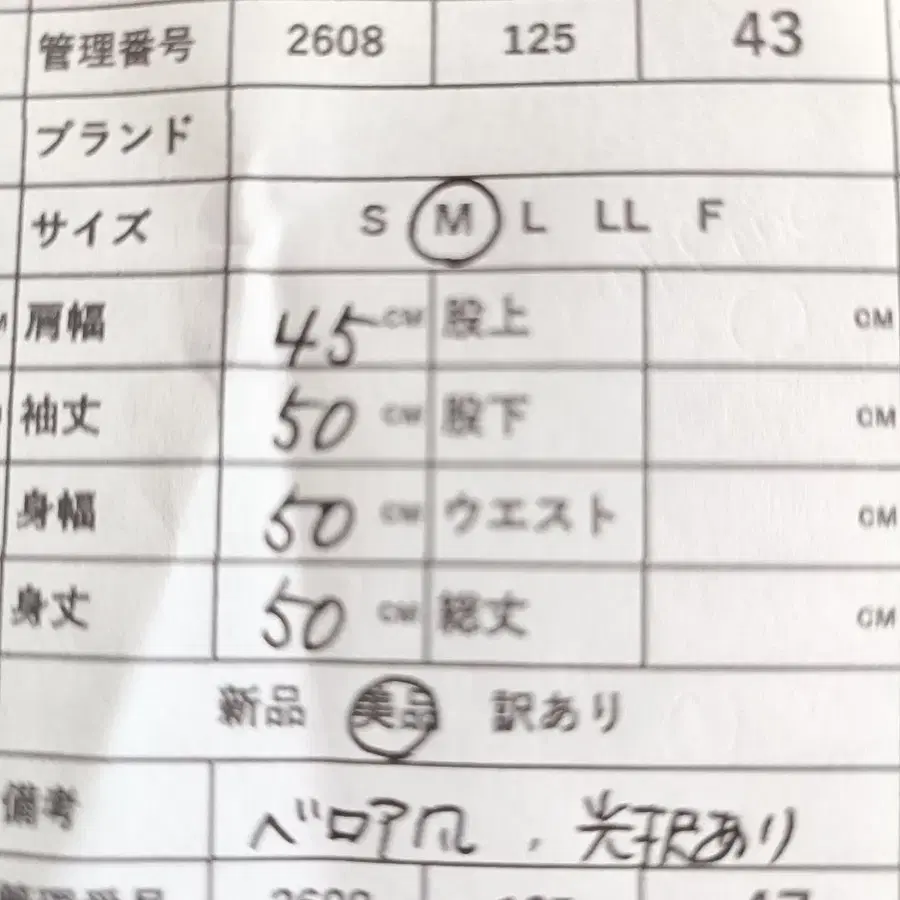 管理番号 2608 125 43
ブランド
サイズ S M L LL F
肩幅 45 CM 股上 CM
袖丈 50 CM 股下 CM
身幅 50 CM ウエスト CM
身丈 50 CM 総丈 CM
新品 美品 訳あり
備考 ベロア風、光沢あり
管理番号 2608 125